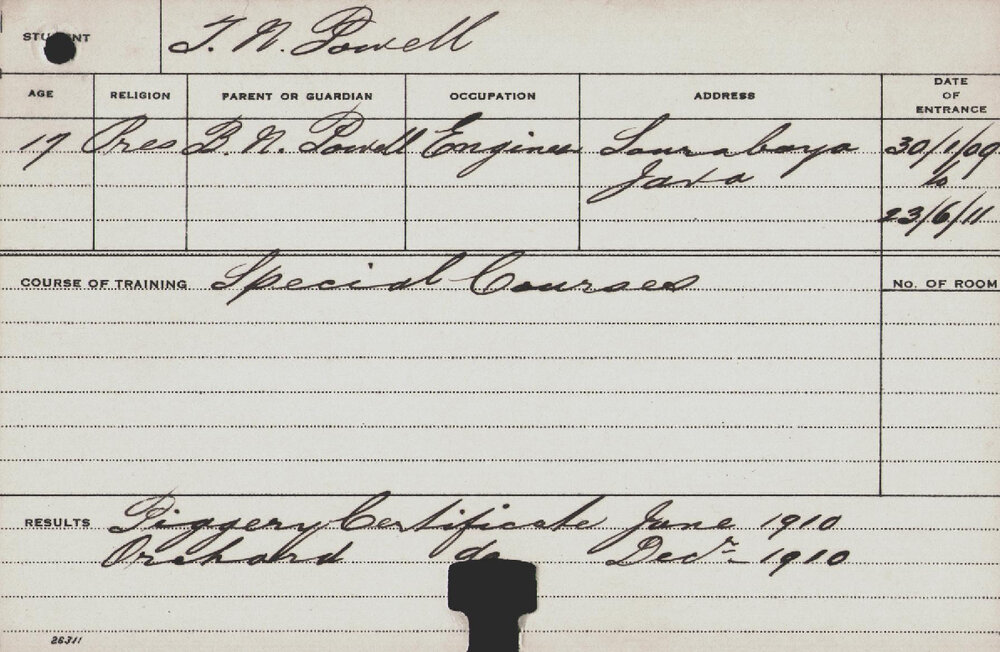 STUDENT T. N. Powell
AGE RELIGION PARENT OR GUARDIAN OCCUPATION ADDRESS DATE OF ENTRANCE
17 Pres B. N. Powell Engineer Sourabaya 30/1/09
Java to
23/6/11
COURSE OF TRAINING Special Courses No. OF ROOM
RESULTS Piggery Certificate June 1910
Orchard do Decr 1910
26311